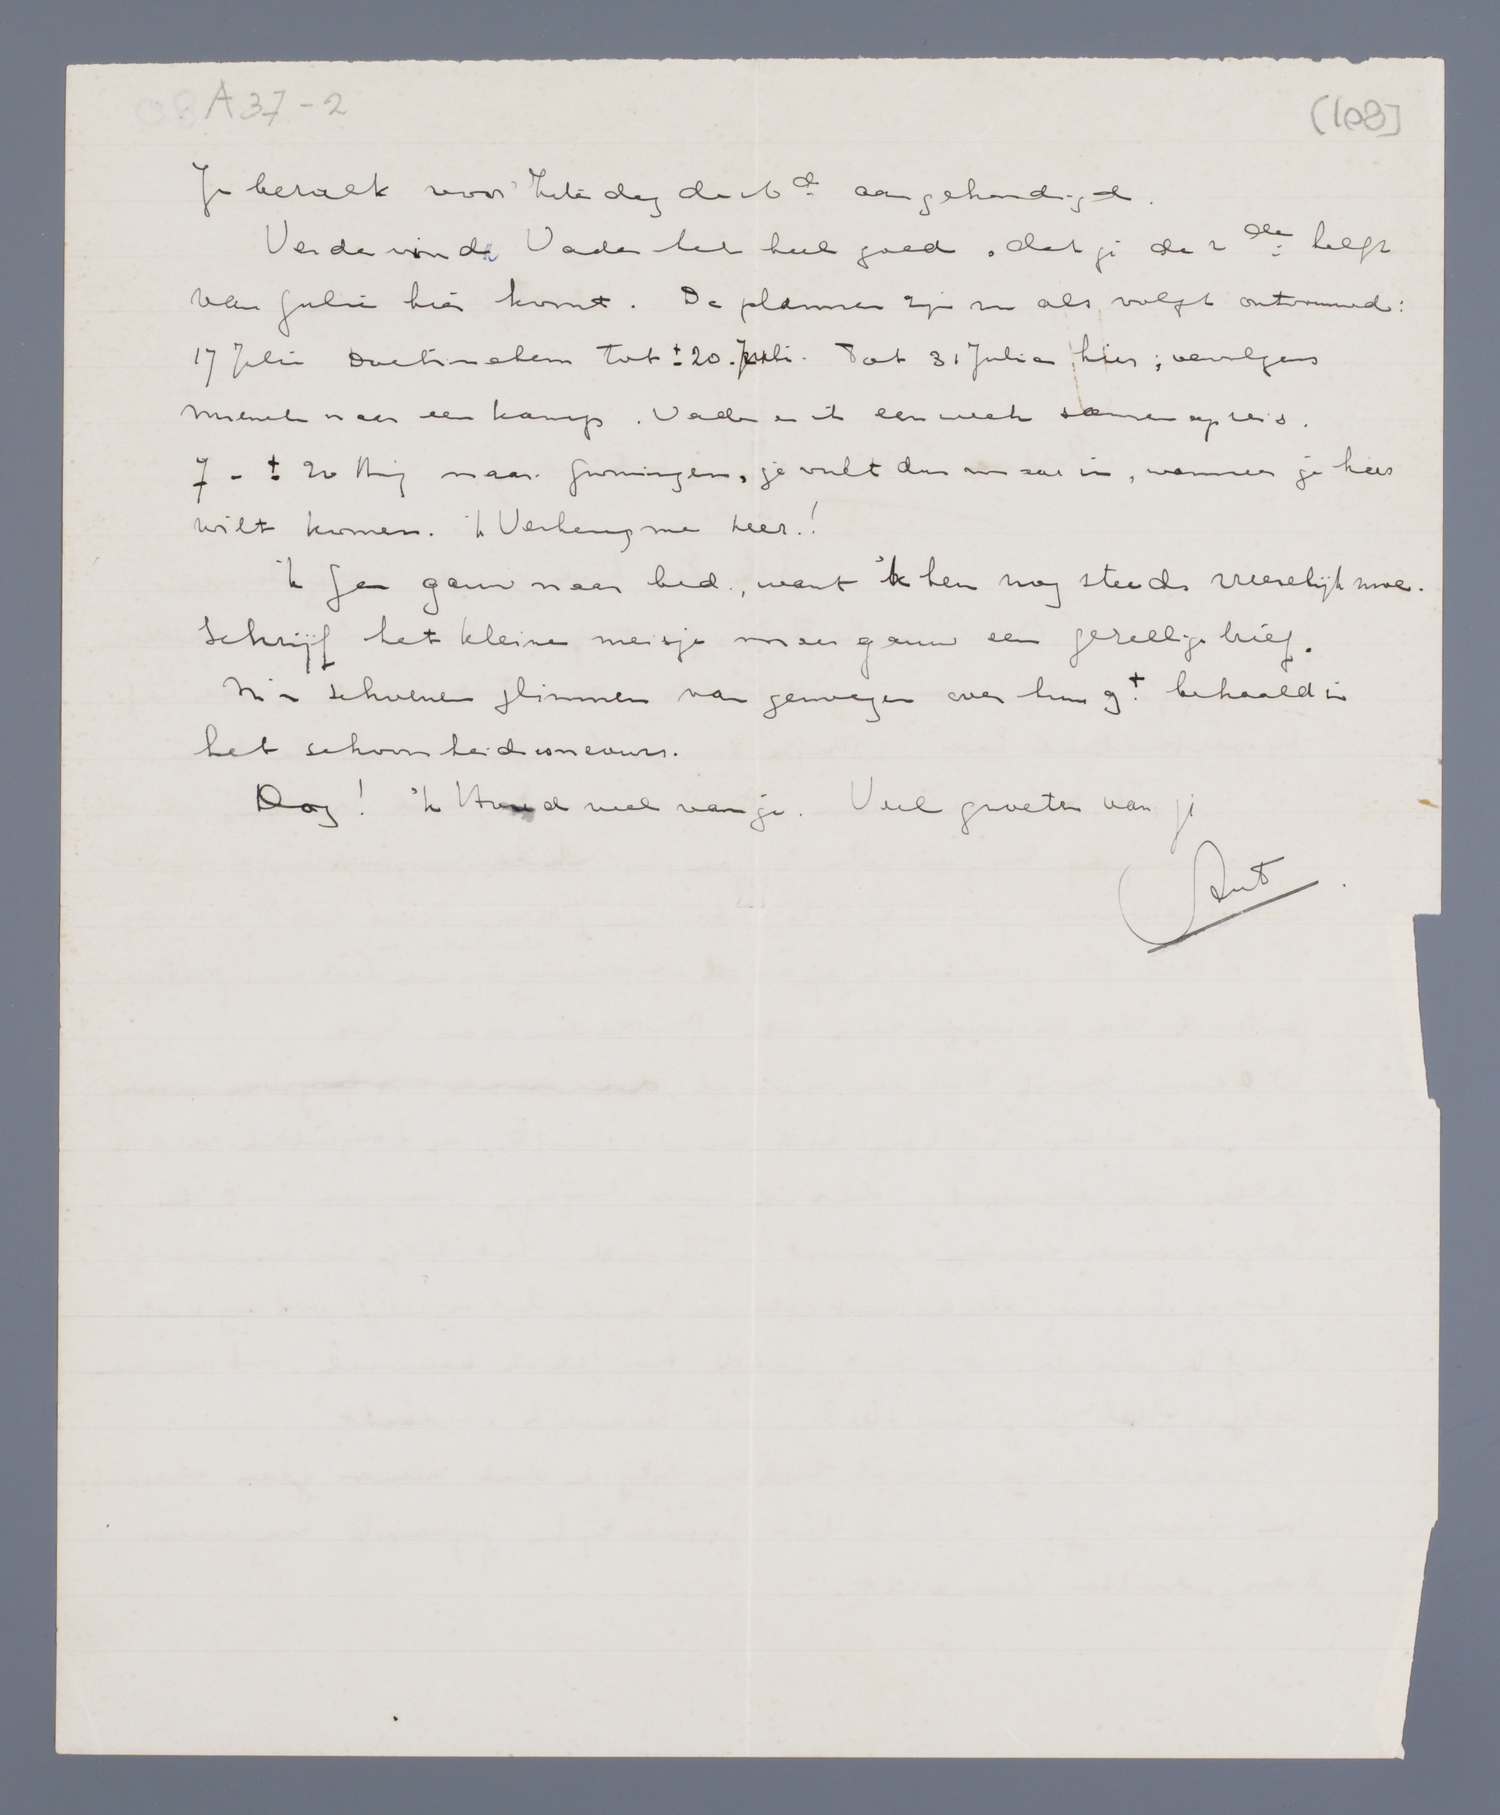 A37-2
(108)
Je bezoek voor Zaterdag de 16d aangekondigd.
Verder vindt Vader het heel goed, dat je de 2de helft
van Julie hier komt. De plannen zijn nu als volgt ontvouwd:
17 Julie Doetinchem tot ± 20 Juli. Tot 31 Julie hier; vervolgens
naar een kamp. Vader en ik een week samen op reis.
7 - ± 20 Aug naar Groningen, je vult dus nu zoo in, wanneer je hier
wilt komen. 'k Verheug me zeer!
'k Ga gauw naar bed, want 'k ben nog steeds vreeselijk moe.
Schrijf het kleine meisje maar gauw een gezellige brief.
M'n schoenen glimmen van genoegen over hun 9+ behaald in
het schoonheidsconcours.
Dag! 'k Houd veel van je. Veel groeten van je
Ant.